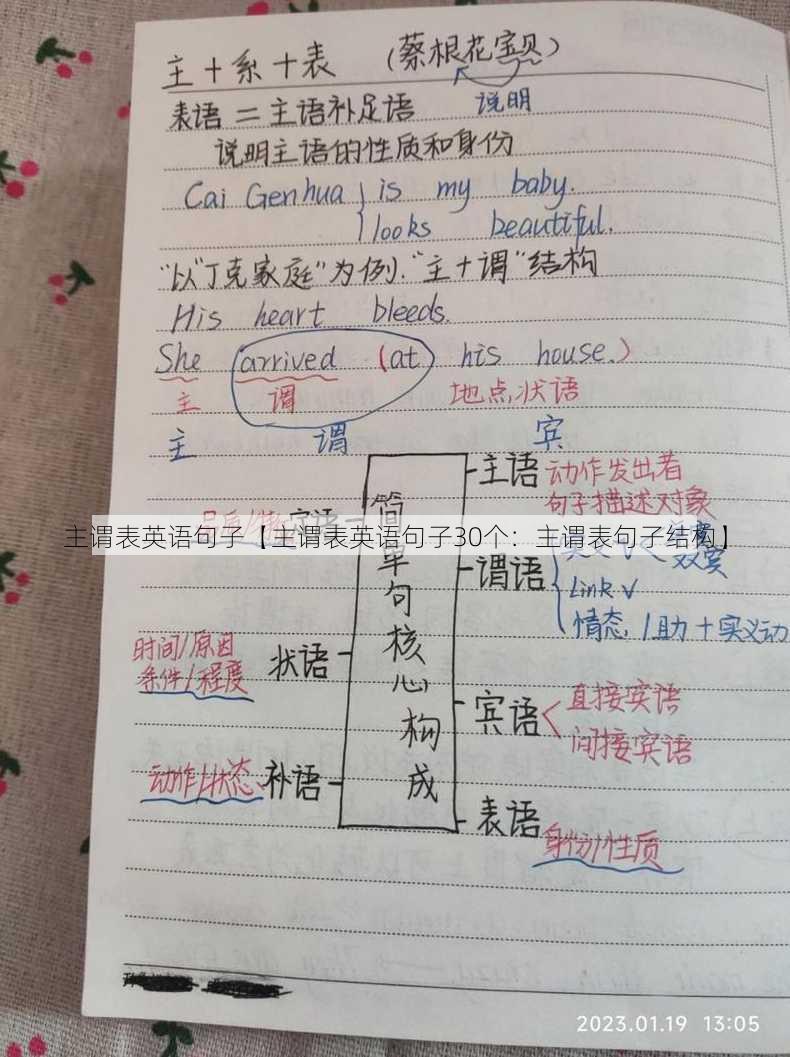 主+系+表 (蔡根花宝贝)
表语=主语补足语 说明
说明主语的性质和身份
Cai Genhua is my baby.
looks beautiful.
"以"丁克家庭"为例."主+谓"结构
His heart bleeds.
She arrived (at his house.)
主 谓 地点状语
主 谓 宾
主语 动作发出者
句子描述对象
主谓表英语句子【主谓表英语句子30个：主谓表句子结构】
简单句核心构成
谓语 双宾
Link v
情态/助+实义动
时间/原因
条件/程度
状语
宾语 直接宾语
间接宾语
动作/状态 补语
表语 身份/性质
2023.01.19 13:05